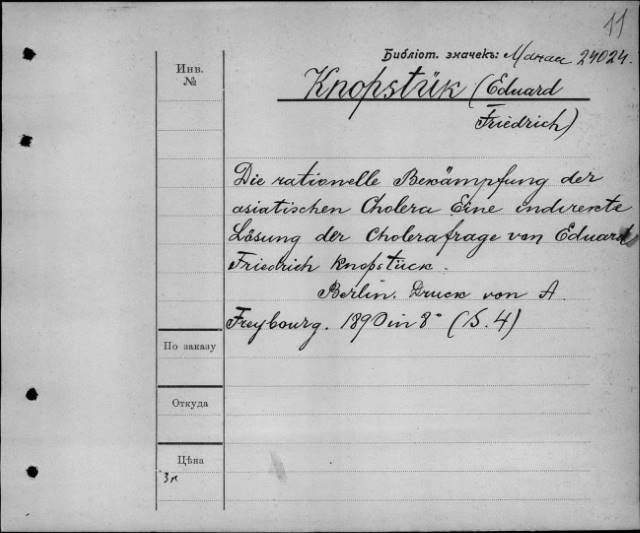 11
Библіот. значекъ: Манас 24024.
Инв.
№
Knopstük (Eduard
Friedrich)
Die rationelle Bekämpfung der
asiatischen Cholera Eine indirekte
Lösung der Cholerafrage von Eduard
Friedrich Knopstück.
Berlin. Druck von A.
Freybourg. 1890 in 8° (S. 4)
По заказу
Откуда
Цѣна